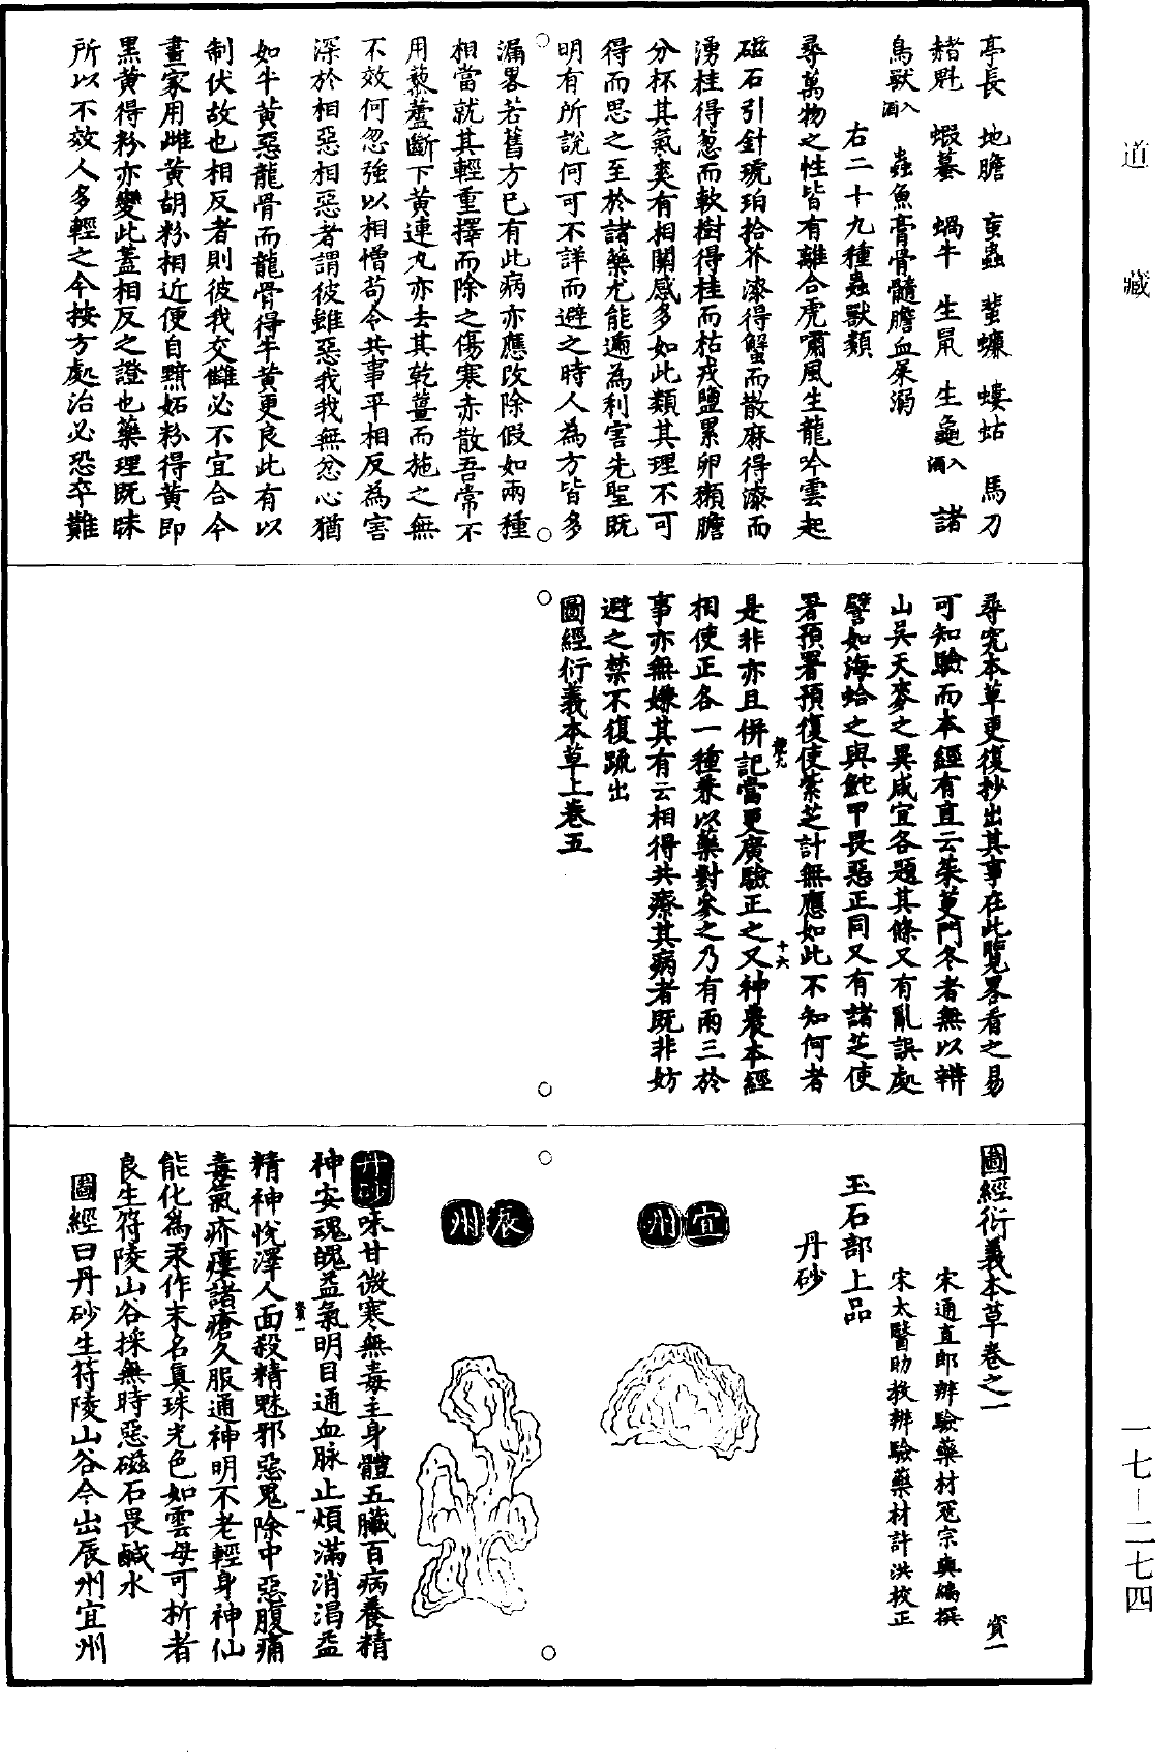 道藏
亭長 地膽 䖟蟲 蜚蠊 螻蛄 馬刀
赭魁 蝦蟇 蝸牛 生鼠 生龜入酒 諸
鳥獸入酒 蟲魚膏骨髓膽血屎溺
右二十九種蟲獸類
尋萬物之性皆有離合虎嘯風生龍吟雲起
磁石引針琥珀拾芥漆得蟹而散麻得漆而
湧桂得葱而軟樹得桂而枯戎鹽累卵獺膽
分杯其氣爽有相關感多如此類其理不可
得而思之至於諸藥尤能遞為利害先聖既
明有所說何可不詳而避之時人為方皆多
漏畧若舊方已有此病亦應改除假如兩種
相當就其輕重擇而除之傷寒赤散吾常不
用藜蘆斷下黃連丸亦去其乾薑而施之無
不效何忽強以相憎苟令共事乎相反為害
深於相惡相惡者謂彼雖惡我我無忿心猶
如牛黃惡龍骨而龍骨得牛黃更良此有以
制伏故也相反者則彼我交讎必不宜合今
畫家用雌黃胡粉相近便自黯妬粉得黃即
黑黃得粉亦變此蓋相反之證也藥理既昧
所以不效人多輕之今按方處治必恐卒難
尋究本草更復抄出其事在此覽畧看之易
可知驗而本經有直云茱萸門冬者無以辨
山吳天麥之異咸宜各題其條又有亂誤處
譬如海蛤之與鮀甲畏惡正同又有諸芝使
署預署預復使紫芝計無應如此不知何者
是非亦且併記當更廣驗正之又神農本經
十六
相使正各一種兼以藥對參之乃有兩三於
事亦無嫌其有云相得共療其病者既非妨
避之禁不復疏出
圖經衍義本草上卷五
圖經衍義本草卷之一 資一
宋通直郎辨驗藥材寇宗奭編撰
宋太醫助教辨驗藥材許洪校正
玉石部上品
丹砂
宜州
辰州
丹砂味甘微寒無毒主身體五臟百病養精
神安魂魄益氣明目通血脉止煩滿消渴益
精神悅澤人面殺精魅邪惡鬼除中惡腹痛
資一
毒氣疥瘻諸瘡久服通神明不老輕身神仙
能化為汞作末名真珠光色如雲母可析者
良生符陵山谷採無時惡磁石畏鹹水
圖經曰丹砂生符陵山谷今出辰州宜州
一七—二七四